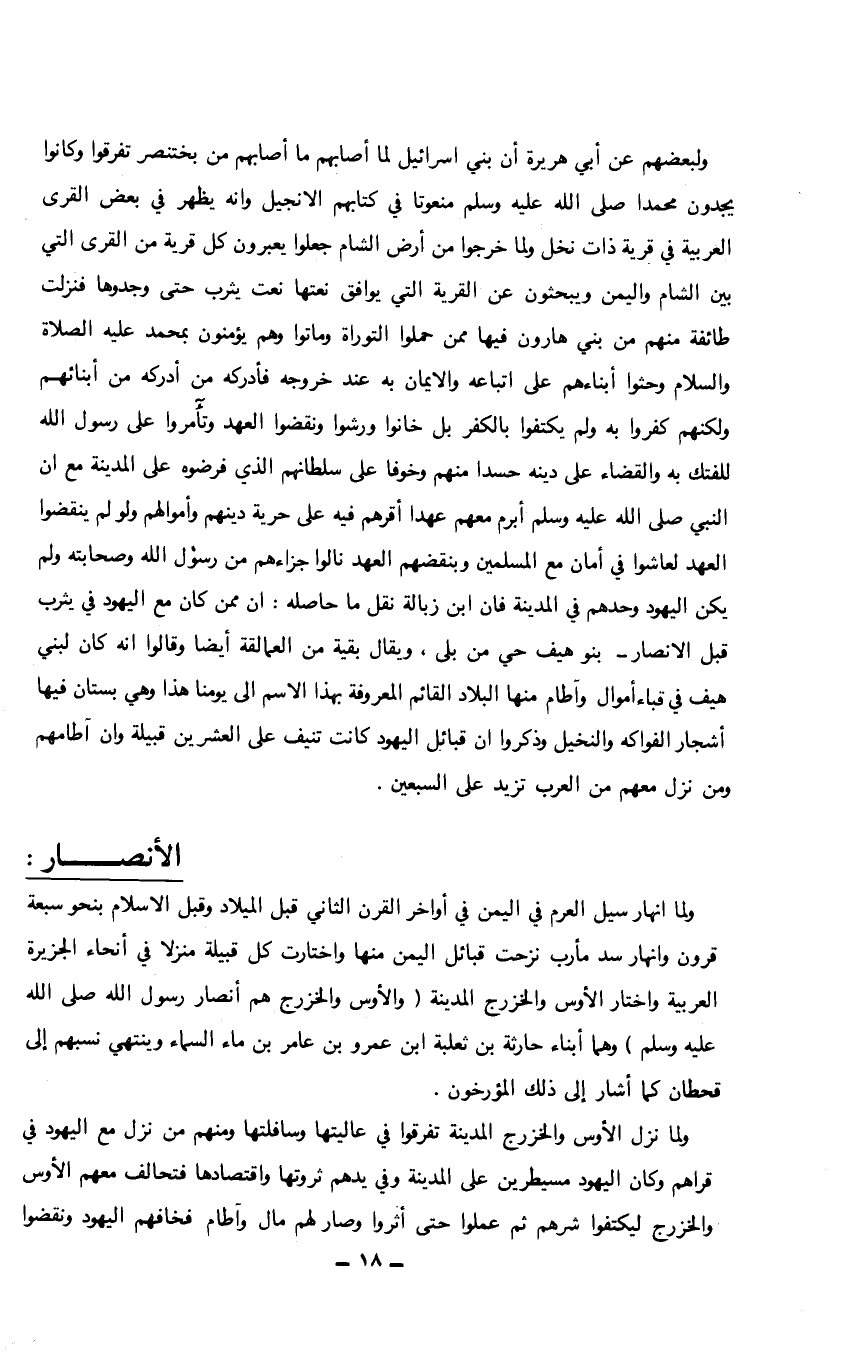 ولبعضهم عن أبي هريرة أن بني اسرائيل لما أصابهم ما أصابهم من بختنصر تفرقوا وكانوا
يجدون محمدا صلى الله عليه وسلم منعوتا في كتابهم الانجيل وانه يظهر في بعض القرى
العربية في قرية ذات نخل ولما خرجوا من أرض الشام جعلوا يعبرون كل قرية من القرى التي
بين الشام واليمن ويبحثون عن القرية التي يوافق نعتها نعت يثرب حتى وجدوها فنزلت
طائفة منهم من بني هارون فيها ممن حملوا التوراة وماتوا وهم يؤمنون بمحمد عليه الصلاة
والسلام وحثوا أبناءهم على اتباعه والايمان به عند خروجه فأدركه من أدركه من أبنائهم
ولكنهم كفروا به ولم يكتفوا بالكفر بل خانوا ورشوا ونقضوا العهد وتآمروا على رسول الله
للفتك به والقضاء على دينه حسدا منهم وخوفا على سلطانهم الذي فرضوه على المدينة مع ان
النبي صلى الله عليه وسلم أبرم معهم عهدا أقرهم فيه على حرية دينهم وأموالهم ولو لم ينقضوا
العهد لعاشوا في أمان مع المسلمين وبنقضهم العهد نالوا جزاءهم من رسول الله وصحابته ولم
يكن اليهود وحدهم في المدينة فان ابن زبالة نقل ما حاصله : ان ممن كان مع اليهود في يثرب
قبل الانصار ـ بنو هيف حي من بلى ، ويقال بقية من العمالقة أيضا وقالوا انه كان لبني
هيف في قباء أموال وآطام منها البلاد القائم المعروفة بهذا الاسم الى يومنا هذا وهي بستان فيها
أشجار الفواكه والنخيل وذكروا ان قبائل اليهود كانت تنيف على العشرين قبيلة وان آطامهم
ومن نزل معهم من العرب تزيد على السبعين .
الأنصـــــــار :
ولما انهار سيل العرم في اليمن في أواخر القرن الثاني قبل الميلاد وقبل الاسلام بنحو سبعة
قرون وانهار سد مأرب نزحت قبائل اليمن منها واختارت كل قبيلة منزلا في أنحاء الجزيرة
العربية واختار الأوس والخزرج المدينة ( والأوس والخزرج هم أنصار رسول الله صلى الله
عليه وسلم ) وهما أبناء حارثة بن ثعلبة ابن عمرو بن عامر بن ماء السماء وينتهي نسبهم إلى
قحطان كما أشار إلى ذلك المؤرخون .
ولما نزل الأوس والخزرج المدينة تفرقوا في عاليتها وسافلتها ومنهم من نزل مع اليهود في
قراهم وكان اليهود مسيطرين على المدينة وفي يدهم ثروتها واقتصادها فتحالف معهم الأوس
والخزرج ليكتفوا شرهم ثم عملوا حتى أثروا وصار لهم مال وآطام فخافهم اليهود ونقضوا
ـ ١٨ ـ